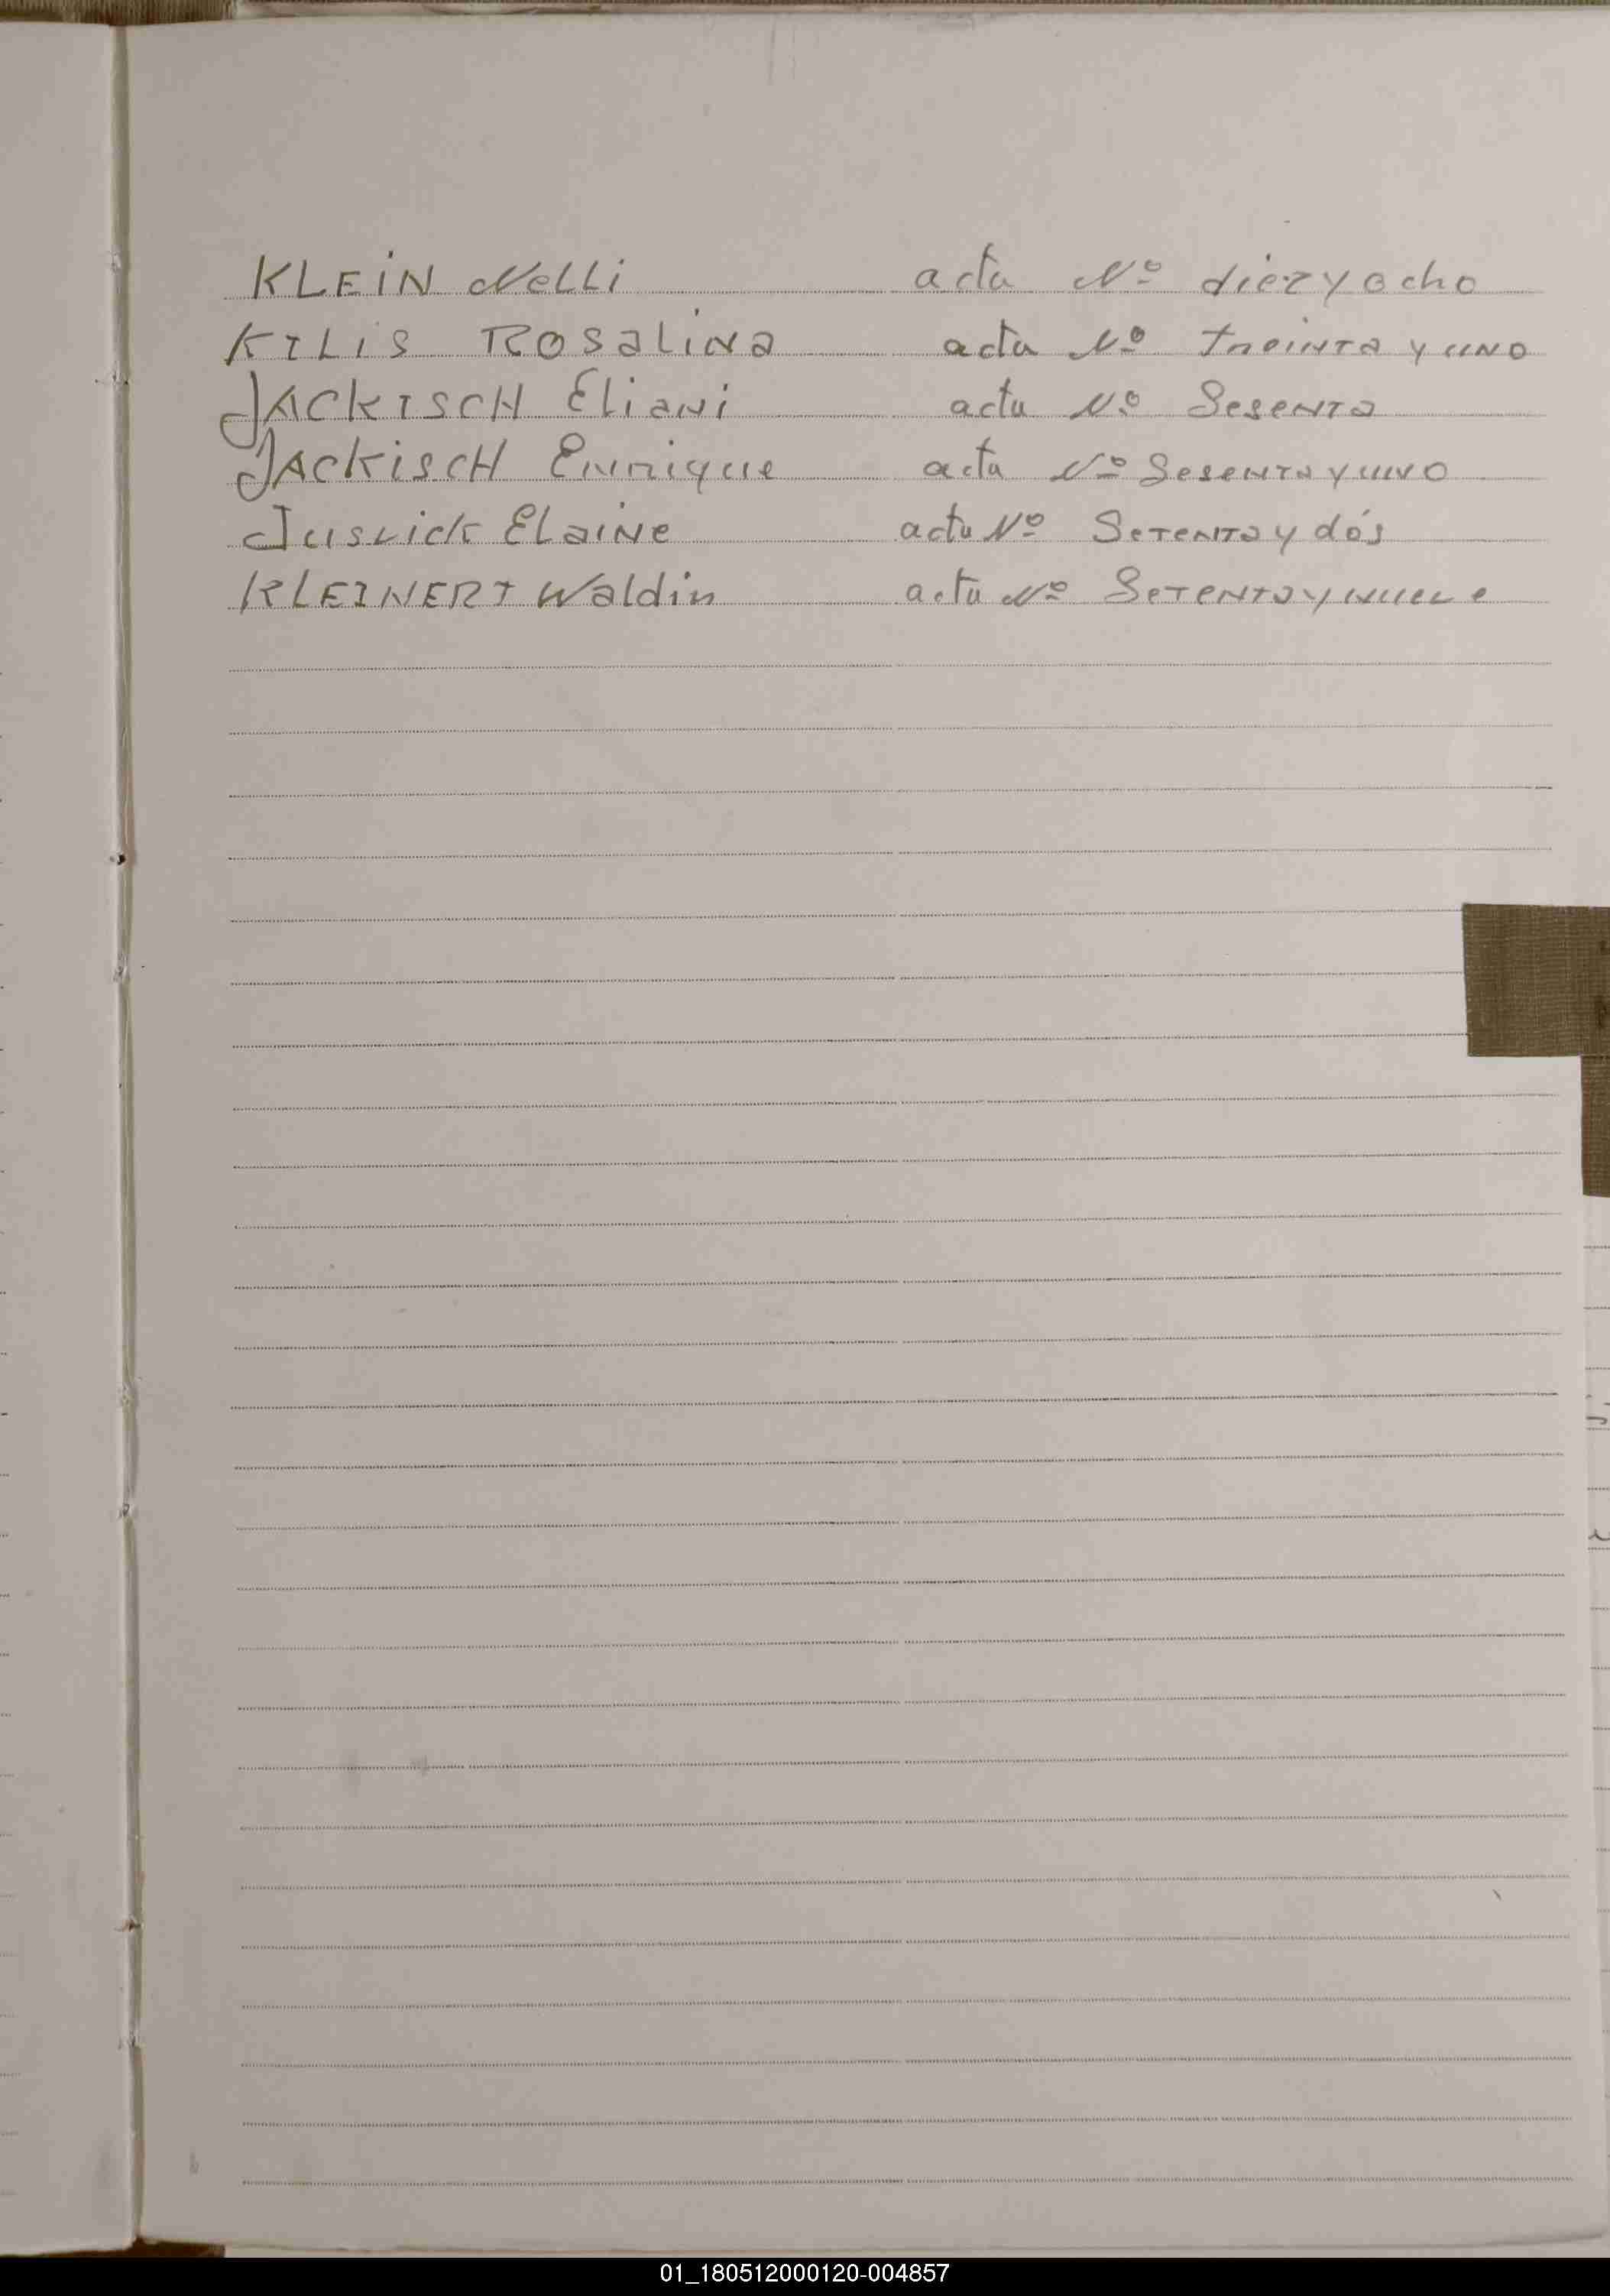 KLEIN Nelli acta Nº diez y ocho
KILIS Rosalina acta Nº treinta y uno
JACKISCH Eliani acta Nº Sesenta
JACKISCH Enrique acta Nº Sesenta y uno
Juslick Elaine acta Nº Setenta y dós
KLEINERT Waldir acta Nº Setenta y nueve
01_180512000120-004857